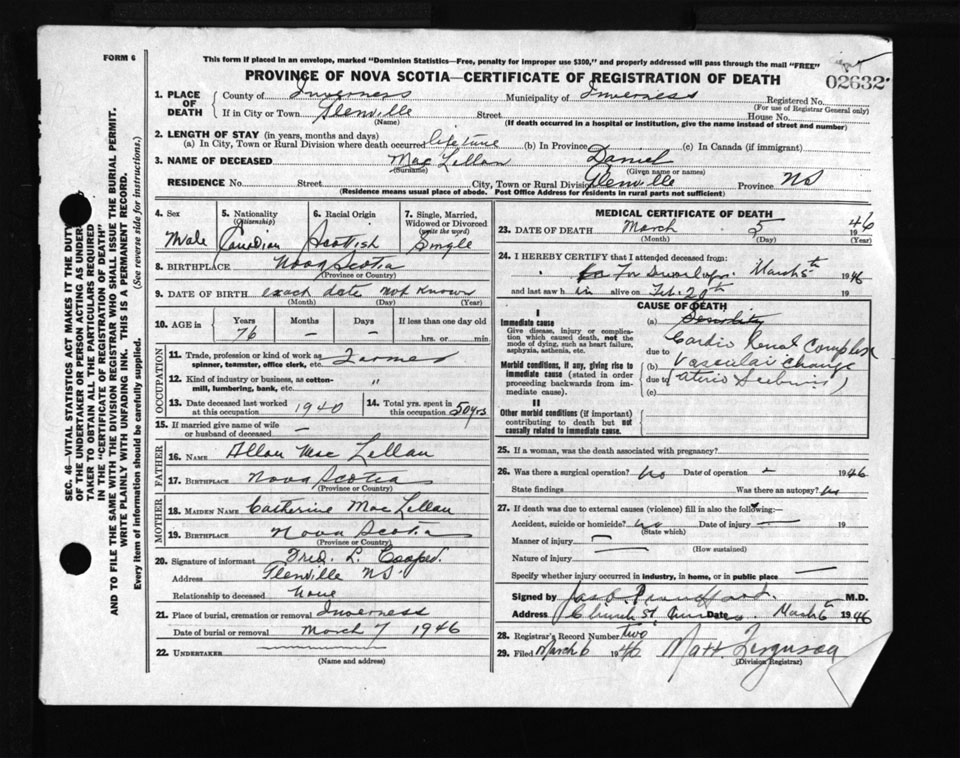 FORM 6
This form if placed in an envelope, marked "Dominion Statistics—Free, penalty for improper use $300," and properly addressed will pass through the mail "FREE"
PROVINCE OF NOVA SCOTIA—CERTIFICATE OF REGISTRATION OF DEATH
02632
1. PLACE OF DEATH
County of Inverness Municipality of Inverness Registered No.
(For use of Registrar General only)
If in City or Town Glenville Street House No.
(Name) (If death occurred in a hospital or institution, give the name instead of street and number)
2. LENGTH OF STAY (in years, months and days)
(a) In City, Town or Rural Division where death occurred lifetime (b) In Province (c) In Canada (if immigrant)
3. NAME OF DECEASED Mac Lellan Daniel
(Surname) (Given name or names)
RESIDENCE No. Street City, Town or Rural Division Glenville Province NS
(Residence means usual place of abode. Post Office Address for residents in rural parts not sufficient)
SEC. 46—VITAL STATISTICS ACT MAKES IT THE DUTY
OF THE UNDERTAKER OR PERSON ACTING AS UNDER-
TAKER TO OBTAIN ALL THE PARTICULARS REQUIRED
IN THE "CERTIFICATE OF REGISTRATION OF DEATH"
AND TO FILE THE SAME WITH THE DIVISION REGISTRAR WHO SHALL ISSUE THE BURIAL PERMIT.
WRITE PLAINLY WITH UNFADING INK. THIS IS A PERMANENT RECORD.
Every item of information should be carefully supplied. (See reverse side for instructions.)
4. Sex
Male
5. Nationality
(Citizenship)
Canadian
6. Racial Origin
Scottish
7. Single, Married,
Widowed or Divorced
(write the word)
Single
8. BIRTHPLACE Nova Scotia
(Province or Country)
9. DATE OF BIRTH exact date not known
(Month) (Day) (Year)
10. AGE in Years Months Days If less than one day old
76 – – hrs. or min.
OCCUPATION
11. Trade, profession or kind of work as Farmer
spinner, teamster, office clerk, etc.
12. Kind of industry or business, as cotton- "
mill, lumbering, bank, etc.
13. Date deceased last worked
at this occupation 1940
14. Total yrs. spent in
this occupation 50 yrs
15. If married give name of wife
or husband of deceased —
FATHER
16. NAME Allan Mac Lellan
17. BIRTHPLACE Nova Scotia
(Province or Country)
MOTHER
18. MAIDEN NAME Catherine Mac Lellan
19. BIRTHPLACE Nova Scotia
(Province or Country)
20. Signature of informant Fred. L. Cooper.
Address Glenville NS.
Relationship to deceased None
21. Place of burial, cremation or removal Inverness
Date of burial or removal March 7 1946
22. UNDERTAKER
(Name and address)
MEDICAL CERTIFICATE OF DEATH
23. DATE OF DEATH March 5 1946
(Month) (Day) (Year)
24. I HEREBY CERTIFY that I attended deceased from:
March 5th 1946
and last saw h im alive on Feb. 20th 19
CAUSE OF DEATH
I
Immediate cause
Give disease, injury or complica-
tion which caused death, not the
mode of dying, such as heart failure,
asphyxia, asthenia, etc.
Morbid conditions, if any, giving rise to
immediate cause (stated in order
proceeding backwards from im-
mediate cause).
II
Other morbid conditions (if important)
contributing to death but not
causally related to immediate cause.
(a)
Cardio Renal Complex
due to
Vascular Change
due to
(c)
25. If a woman, was the death associated with pregnancy?
26. Was there a surgical operation? no Date of operation – 1946
State findings Was there an autopsy? no
27. If death was due to external causes (violence) fill in also the following:—
Accident, suicide or homicide? no Date of injury — 19
(State which)
Manner of injury
(How sustained)
Nature of injury
Specify whether injury occurred in industry, in home, or in public place —
Signed by M.D.
Address Church St. Date March 6 1946
28. Registrar's Record Number two
29. Filed March 6 1946 Matt. Ferguson
(Division Registrar)